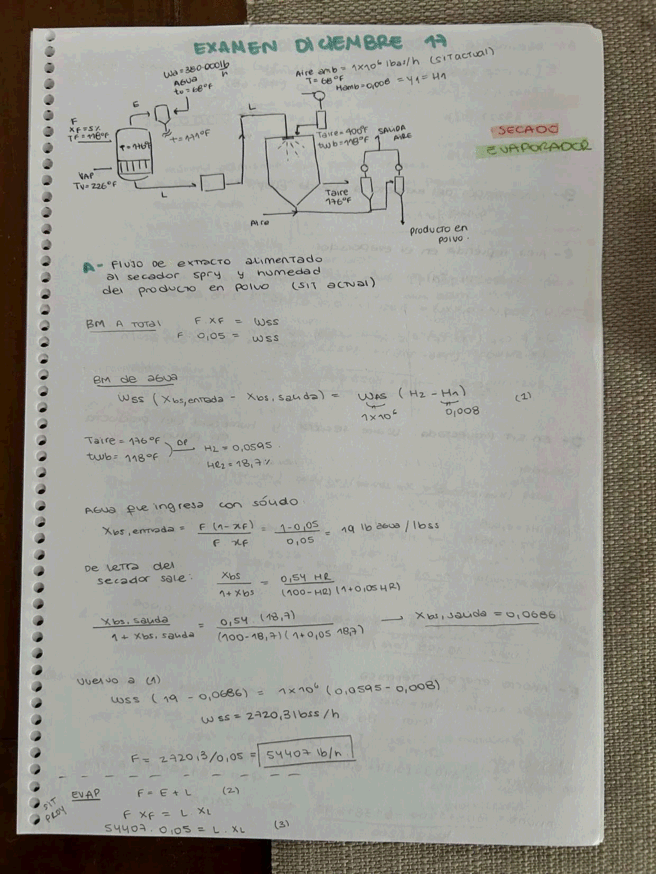 EXAMEN DICIEMBRE 17
Wa=380.000 lb/h
AGUA
tw=68°F
Aire amb = 1x10⁶ lbas/h (SIT actual)
T=68°F
Hamb=0,008 = Y1 = H1
E
L
F
XF=5%
TF=118°F
T=176°F
T=171°F
VAP
TV=226°F
L
Taire=400°F
twb=118°F
SALIDA AIRE
Taire
176°F
Aire
Producto en polvo.
SECADO
EVAPORADOR
A- Flujo de extracto alimentado
al secador spry y humedad
del producto en polvo (SIT actual)
BM A TOTAL F XF = WSS
F 0,05 = WSS
BM de agua
WSS (Xbs,entrada - Xbs,salida) = WAS (H2 - H1) (1)
1x10⁶ 0,008
Taire=176°F
twb=118°F
H2=0,0595
HR2=18,7%
Agua que ingresa con sólido:
Xbs,entrada = F (1-XF) / F XF = 1-0,05 / 0,05 = 19 lb agua / lbss
De letra del
secador sale: Xbs / 1+Xbs = 0,54 HR / (100-HR)(1+0,05HR)
Xbs.salida / 1+Xbs.salida = 0,54.(18,7) / (100-18,7)(1+0,05 18,7) → Xbs,salida=0,0686
Vuelvo a (1)
WSS (19 - 0,0686) = 1x10⁶ (0,0595-0,008)
WSS=2720,3 lbss/h
F= 2720,3/0,05 = 54407 lb/h
SIT PROY
EVAP F=E+L (2)
F XF = L XL
54407. 0,05 = L. XL (3)